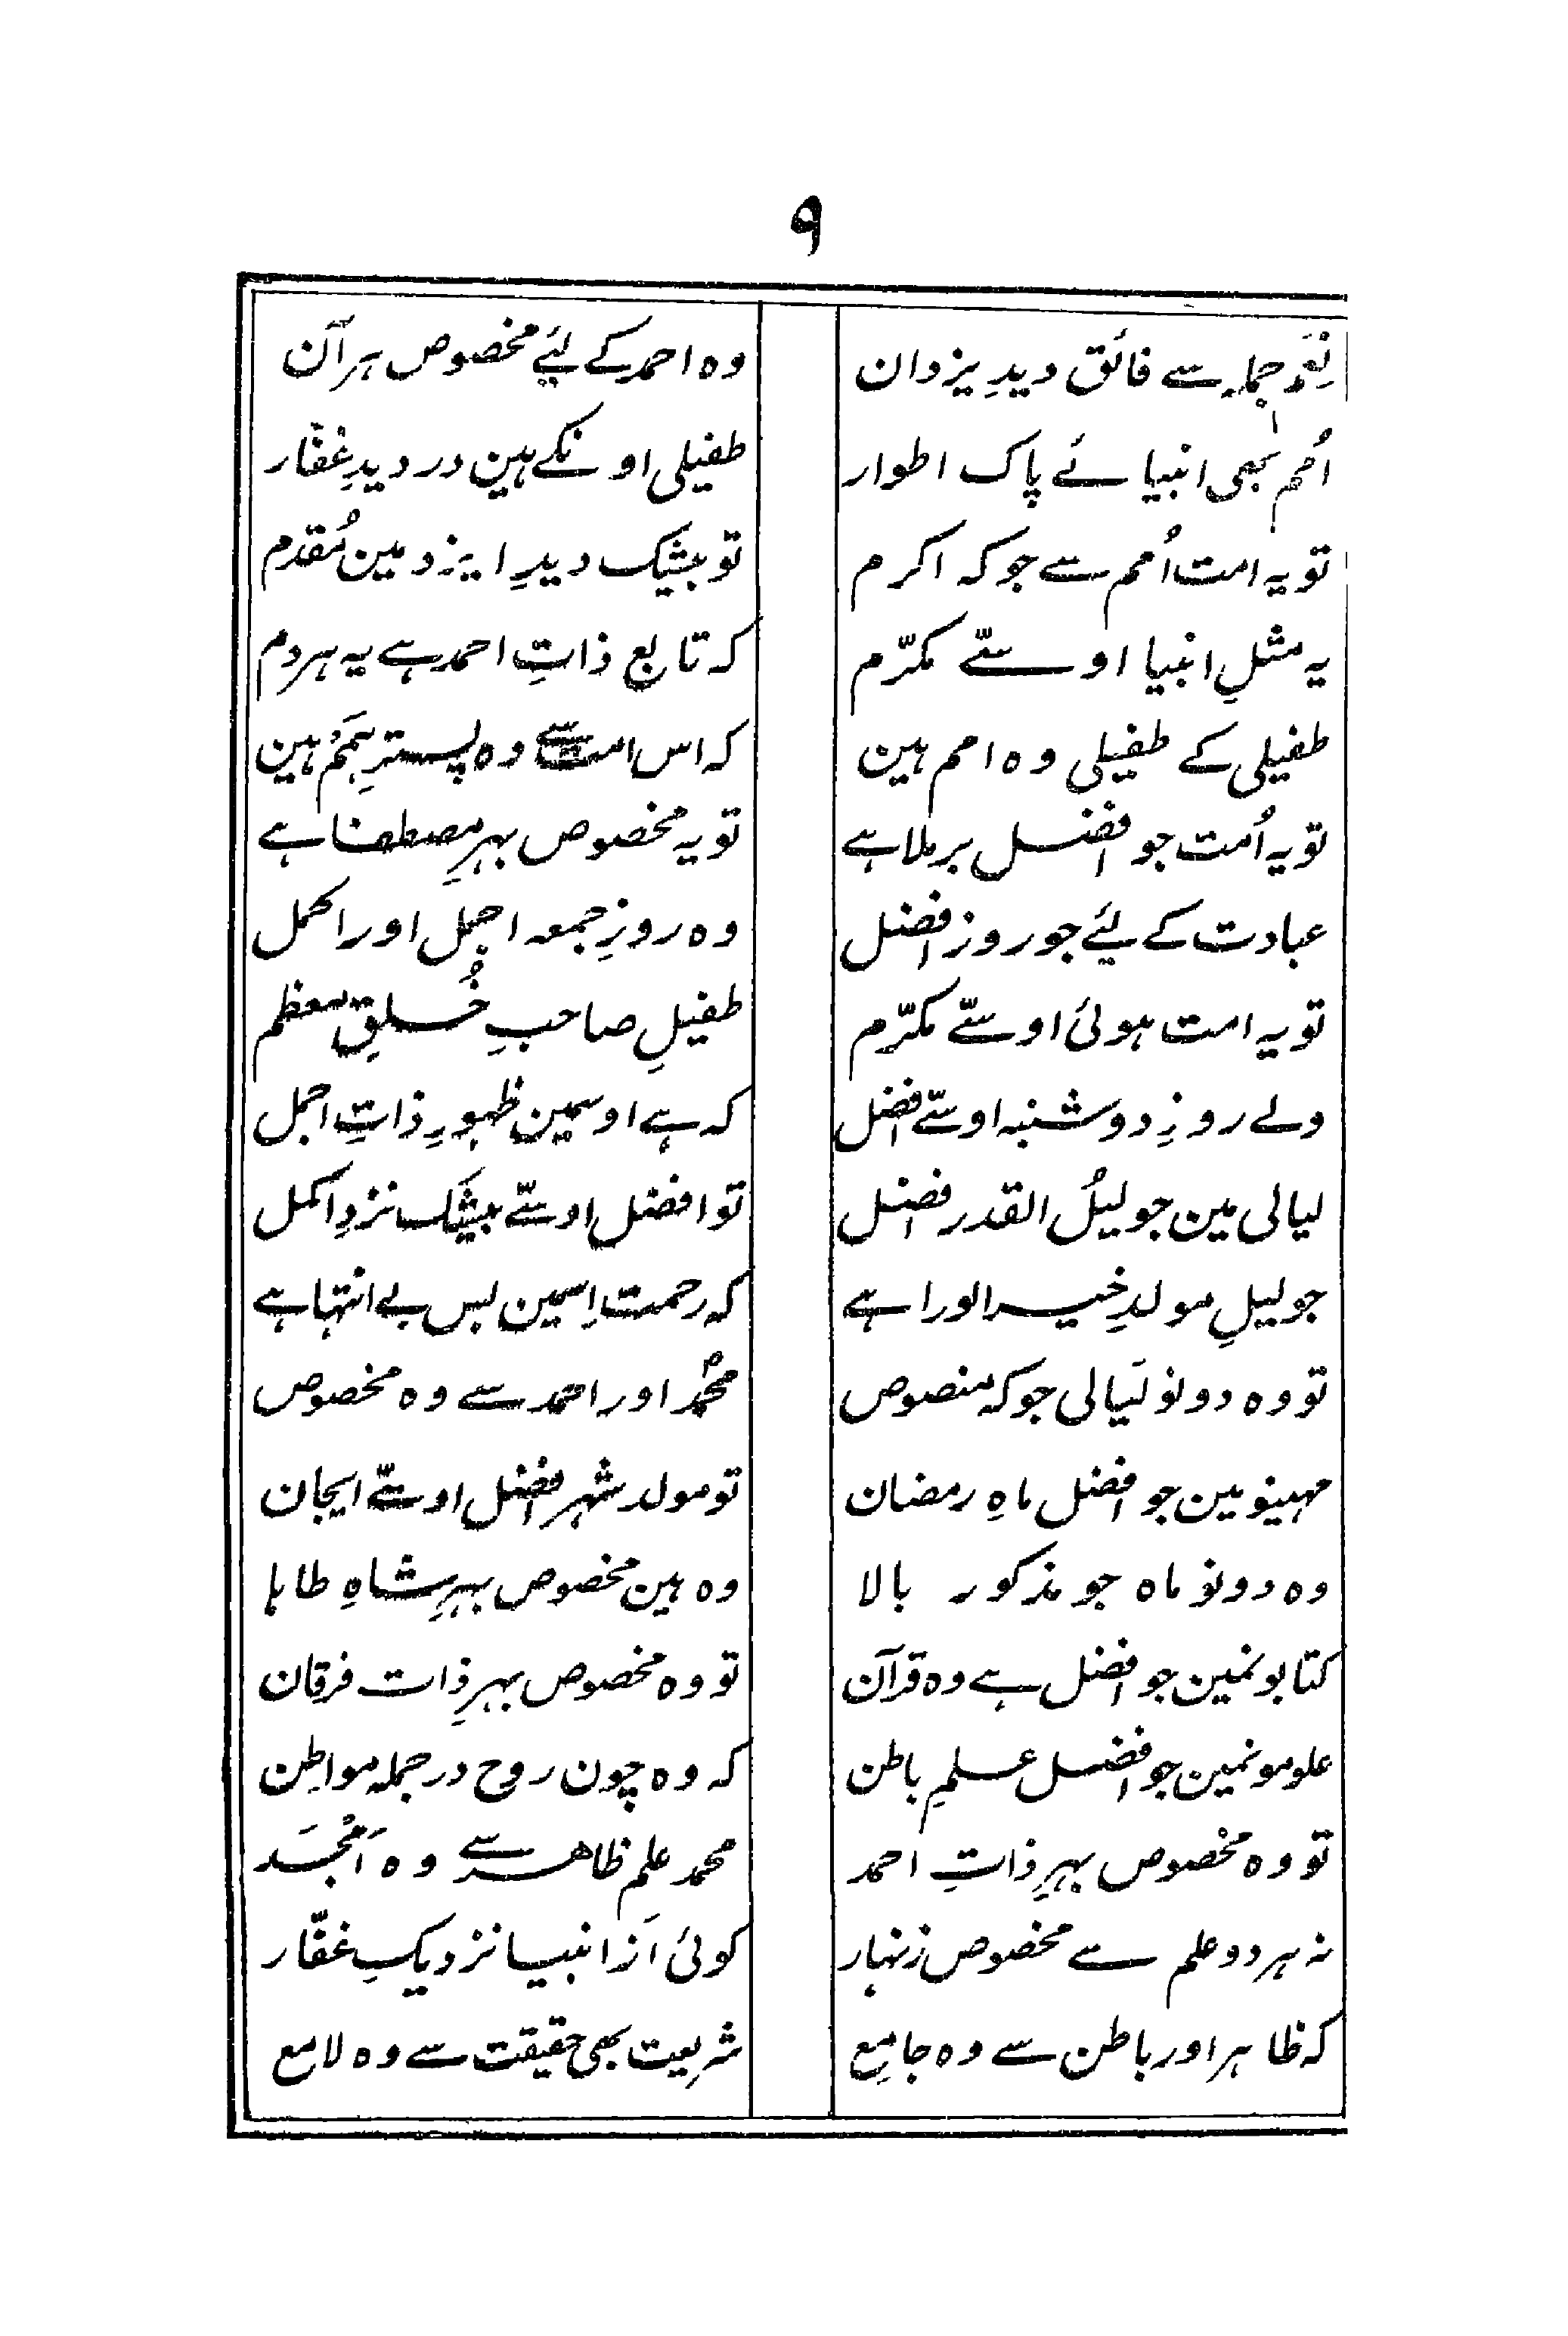 ۹
نِعَم جملہ سے فائق دیدِ یزدان
وہ احمد کے لئے مخصوص ہر آن
اُمم بھی انبیائے پاک اطوار
طفیلی اونکے ہین در دیدِ غفّار
تو یہ امت اُمم سے جو کہ اکرم
تو بیشک دیدِ ایزد مین مُقدم
یہ مثلِ انبیا اوسّے مکرّم
کہ تابع ذاتِ احمد ہے یہ ہردم
طفیلی کے طفیلی وہ امم ہین
کہ اس امت سے وہ پستر بَہَم ہین
تو یہ اُمت جو افضل برملا ہے
تو یہ مخصوص بہرِ مصطفا ہے
عبادت کے لئے جو روز افضل
وہ روزِ جمعہ اجمل اور اکمل
تو یہ امت ہوئی اوسّے مکرّم
طفیلِ صاحبِ خُلقِ معظم
ولے روزِ دوشنبہ اوسّے افضل
کہ ہے اوسمین ظہورِ ذاتِ اجمل
لیالی مین جو لیلُ القدر افضل
تو افضل اوسّے بیشک نزدِ اکمل
جو لیلِ مولدِ خیر الورا ہے
کہ رحمت اِسمین بس بے انتہا ہے
تو وہ دونو لَیالی جو کہ منصوص
محمدؐ اور احمد سے وہ مخصوص
مہینو مین جو افضل ماہِ رمضان
تو مولد شہر افضل اوسّے ایجان
وہ دونو ماہ جو مذکور بالا
وہ ہین مخصوص بہرِ شاہِ طاہا
کتابونمین جو افضل ہے وہ قرآن
تو وہ مخصوص بہرِ ذات فرقان
علومونمین جو افضل علمِ باطن
کہ وہ چون روح در جملہ مواطِن
تو وہ مخصوص بہرِ ذاتِ احمد
محمد علمِ ظاہر سے وہ اَمْجَد
نہ ہر دو علم سے مخصوص زنہار
کوئی اَز انبیا نزدیکِ غفّار
کہ ظاہر اور باطن سے وہ جامِع
شریعت بھی حقیقت سے وہ لامع